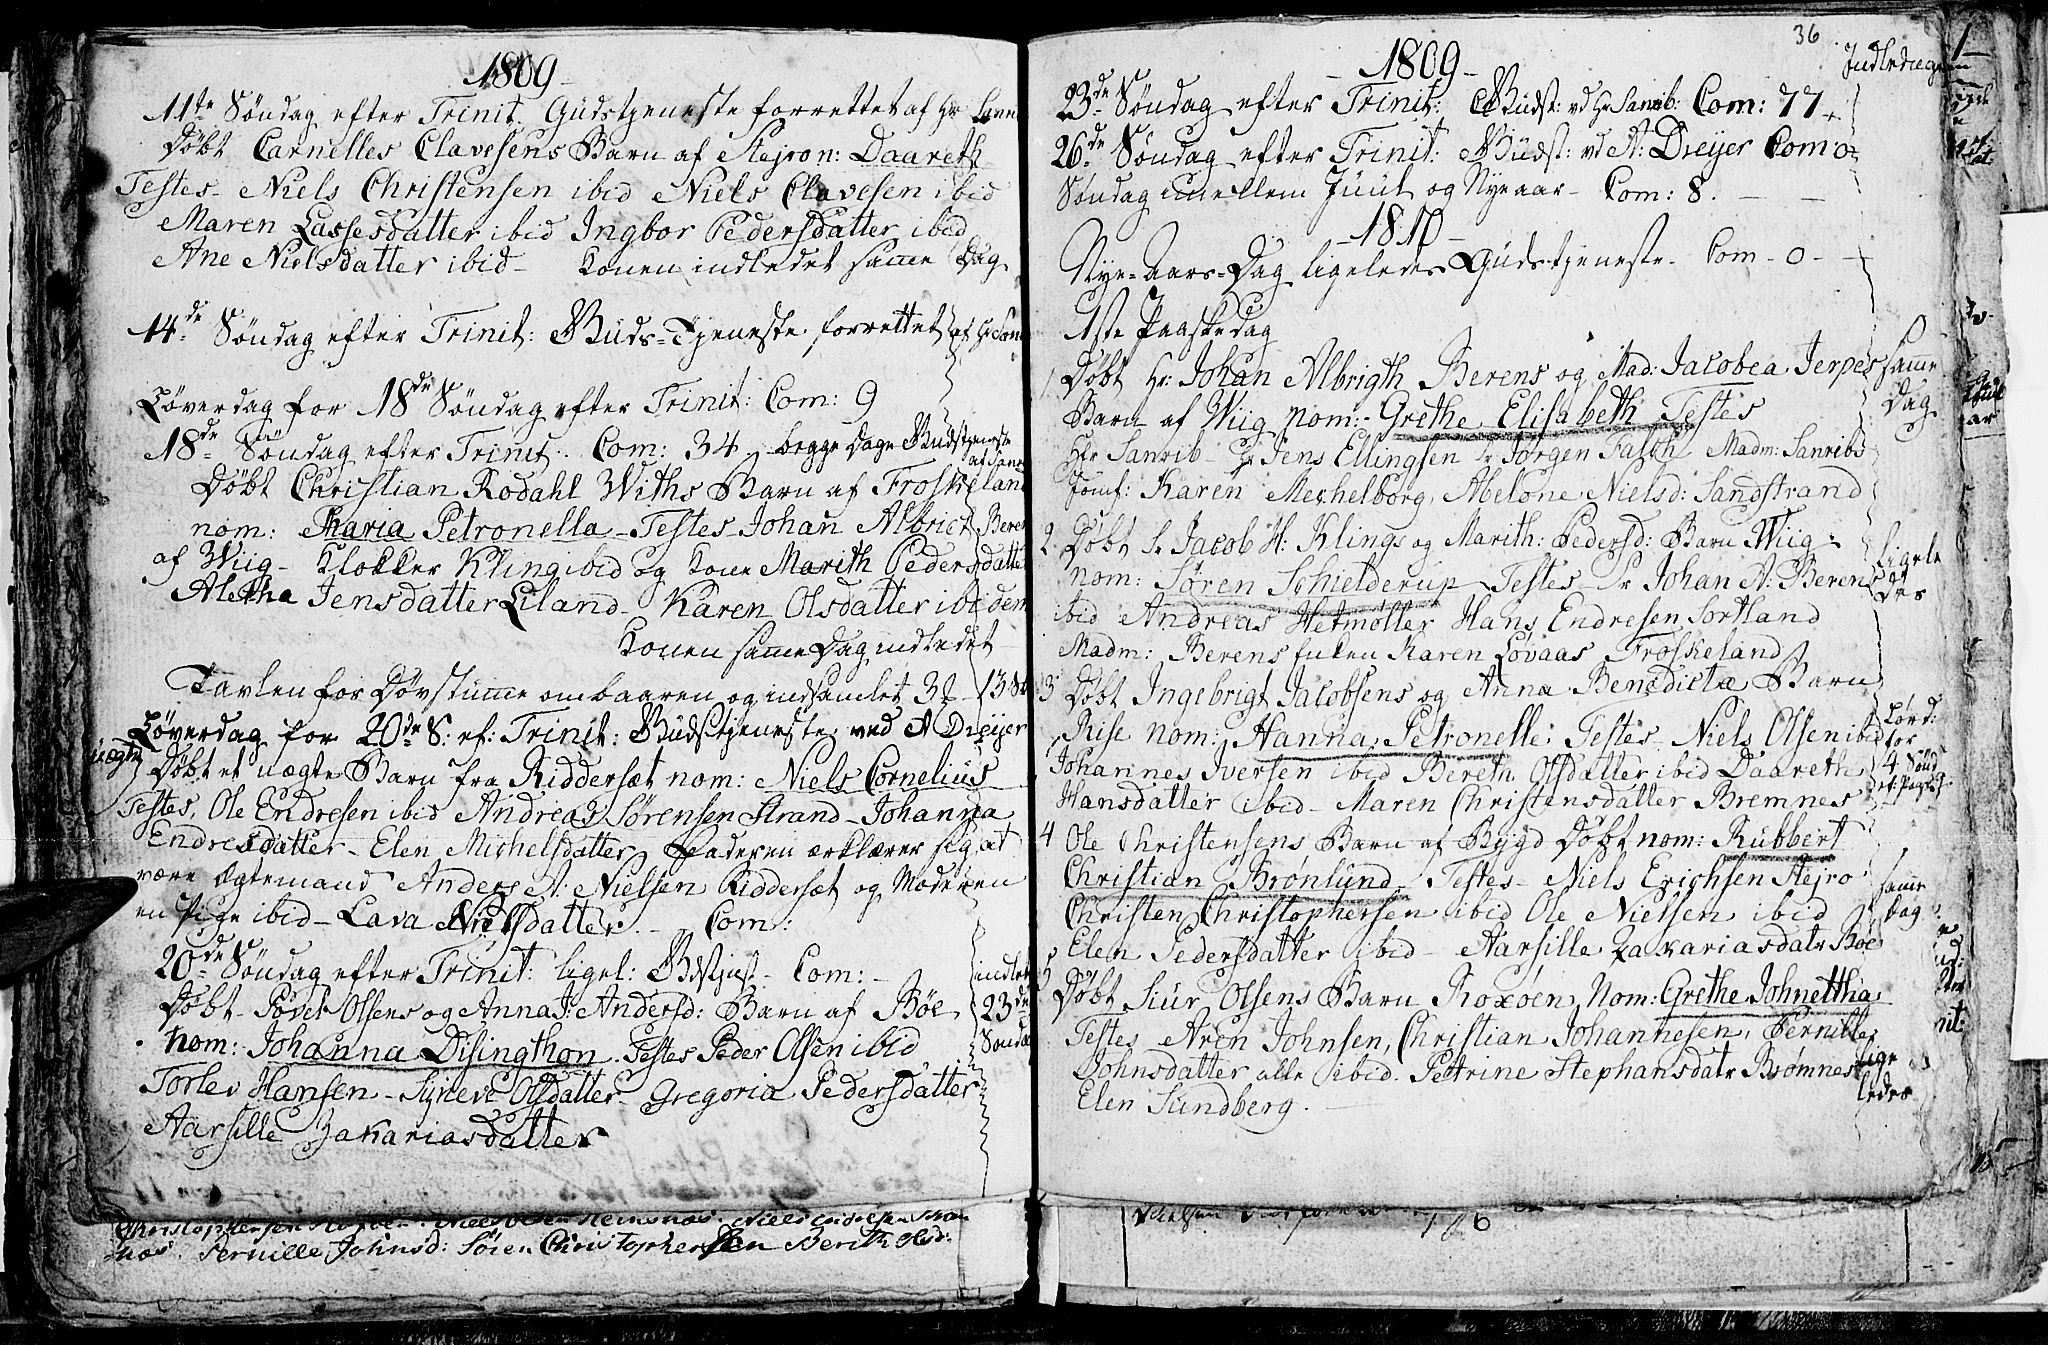 1809
11te Søndag efter Trinit. Gudstjeneste forrettet af Hr
Døbt Carnelles Clavesens Barn af Stejron: Daareth
Testes - Niels Christensen ibid Niels Clavesen ibid
Maren Lassesdatter ibid Ingbor Pedersdatter ibid
Ane Nielsdatter ibid - Konen indledet samme Dag
14de Søndag efter Trinit: Guds-Tjeneste forrettet af Hr
Løverdag for 18de Søndag efter Trinit: Com: 9
18de Søndag efter Trinit. Com: 34 - begge Dage Gudstjeneste
Døbt Christian Rodahl Withs Barn af Froskeland
nom: Maria Petronella - Testes - Johan Albrict Beren
af Wiig - Klokker Kling ibid og Kone Marith Pedersdatter
Aletha Jensdatter Eiland - Karen Olsdatter ibidem
Konen samme Dag indledet
Tavlen for Døvstumme ombaaren og indsamlet 3
Løverdag for 20de S: ef: Trinit: Gudstjeneste ved A Dreyer
uægte Døbt et uægte Barn fra Riddersæt nom: Niels Cornelius
Testes, Ole Endresen ibid Andreas Sørensen Strand - Johanna
Endresdatter - Elen Michelsdatter, Faderen erklærer sig at
være Egtemand Anders A: Nielsen Riddersæt og Moderen
en Pige ibid - Lava Nielsdatter. - Com:
20de Søndag efter Trinit: ligel: Com: -
Døbt - Povel Olsens og Anna J: Andersd: Barn af Bøe
nom: Johanna Disingthon. Testes Peder Olsen ibid
Torlev Hansen - Sÿneve Olsdatter - Gregoria Pedersdatter
Aarsille Zakariasdatter
indled
23de
Sønda
Pernille Johnsd: Søren Christophersen Berith Olsd:
36
1809
Indledægen
23de Søndag efter Trinit: Gudst: vd Hr Sanrib: Com: 77
26de Søndag efter Trinit: Gudst: vd A: Dreyer Com 0
Søndag imellem Juul og Nyeaar - Com: 8.
1810
Nye-Aars-Dag ligeledes Gudstjeneste - Com - 0 -
1ste Paaskedag
1 Døbt Hr: Johan Albrigth Berens og Mad: Jacobea Jerpes samme
Barn af Wiig nom: Grethe Elisabeth Testes Dag
Hr Sanrib - Hr Jens Ellingsen Sr Jørgen Falch Madm: Sanribs
Jomf: Karen Mechelborg, Abelone Nielsd: Sandstrand
2 Døbt S. Jacob H: Klings og Marith: Pedersd: Barn Wiig Ligele
nom: Søren Schielderup Testes - Sr Johan A: Berens des
ibid Andreas Hetmøller Hans Endresen Sortland
Madm: Berens Enken Karen Løvaas Froskeland
3 Døbt Ingebrigt Jacobsens og Anna Benedicta Barn
Rise nom: Hanna Petronelle Testes - Niels Olsen ibid
Johannes Iversen ibid Bereth Olsdatter ibid Daareth
Hansdatter ibid - Maren Christensdatter Bremnes
Lørd:
for
4 Sønd
4 Ole Christensens Barn af Bÿgd Døbt nom: Rubbert
Christian Brønlund - Testes - Niels Erichsen Stejro samme
Christen Christophersen ibid Ole Nielsen ibid Dag
Elen Pedersdatter ibid - Aarsille Zakariasdatr Bøe
5 Døbt Siur Olsens Barn Roxøen, Nom: Grethe Johnettha
Testes Aren Johnsen, Christian Johannesen, Pernille
Johnsdatter alle ibid. Petrine Stephansdatr Brømnes lige
Elen Sundberg. ledes